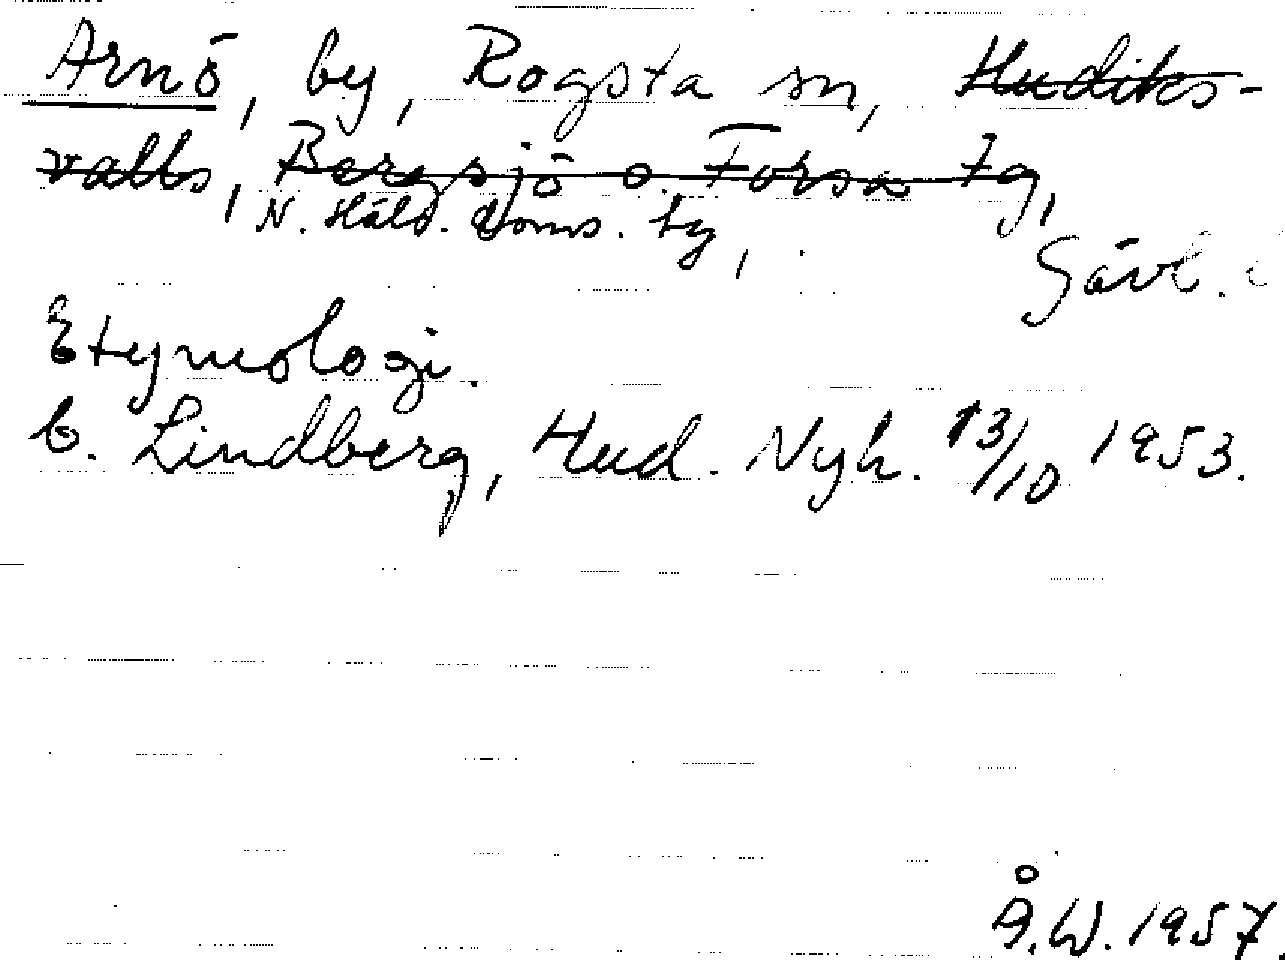 Arnö, by, Rogsta sn, Hudiks-
valls, Bergsjö o. Forsa tg,
N. Häls. doms. tg,
Gävl.
Etymologi.
E. Lindberg, Hud. Nyh. 13/10 1953.
Å.W. 1957.